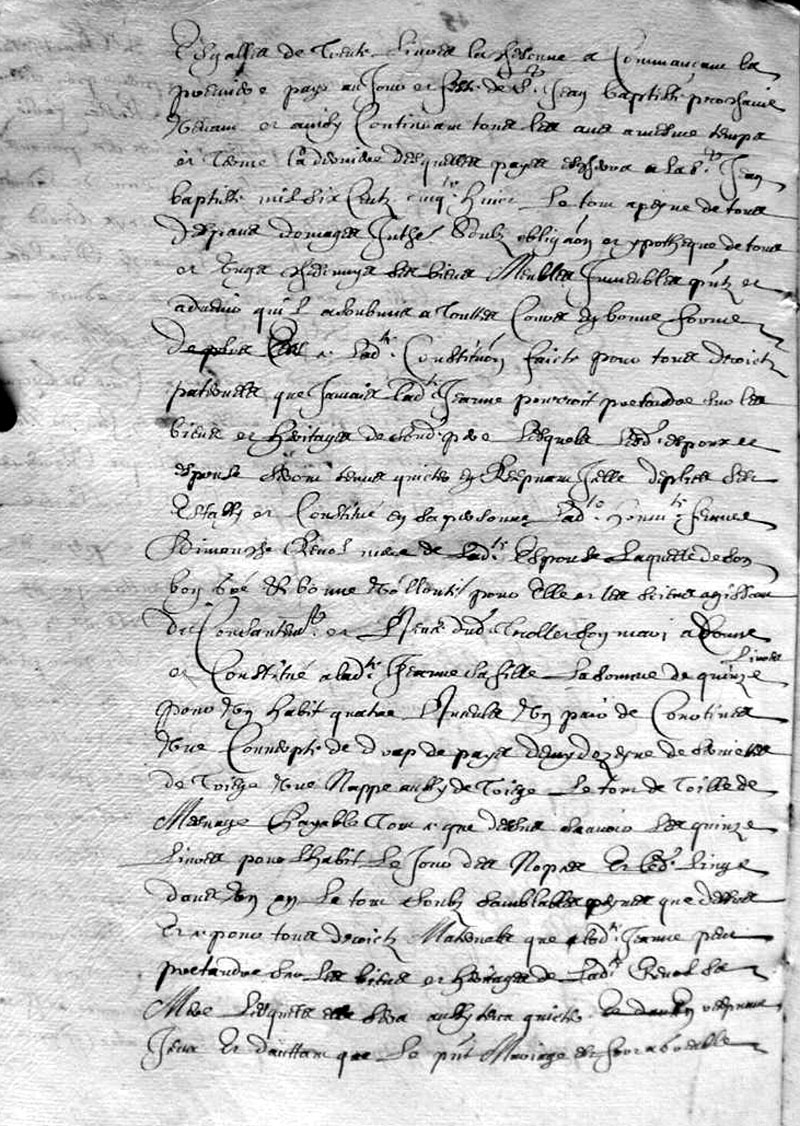 Esgalles de Trente Livres la chescune a Commancant la
premiere paye au Jour et feste de St. Jean baptiste prochain
Venant et ainsy Continuant tous les ans a mesme temps
et terme La derniere desquelles payes eschera a la St. Jean
baptiste mil six Centz cinqte. huict Le tout a peyne de tous
Despans domages Inthes Soubz obligaon et ypotheque de tous
et Ungs chescungs ses biens Meubles Immeubles pntz et
advenir qu'il a soubmis a Touttes Cours En bonne forme
lade. Constituon faicte pour tous droictz
paternels que Jamais lade. Jeanne pourroit pretandre sur les
biens et heritages de sond. pere Lesquels lesd. espoux et
espouse seront tenus quicter En Reepnant Icelle
Estably et Constitué en sa personne lade. honnte. femme
mere de lade. Espouse Laquelle de son
bon gré et bonne Vollonté pour Elle et les siens agissant
du Consantemt. et dud. son mari a donné
et Constitué a lade. Jeanne sa fille La somme de quinze Livres
pour Ung habit quatre Ung pair de
Une de drap de pays demy dozeyne de serviettes
de Une Nappe aussy de Le tout de Toille de
Mesnage Payable Tout que dessus scavoir Les quinze
Livres pour l'habit Le Jour des Nopces Et led. Linge
dans Ung an Le tout Soubz samblables peynes que dessus
Et pour tous droictz Maternels que lade. Jeanne peut
pretandre sur Les biens et heritages de Lade. sa
Mere Lesquels elle sera aussy tenue quicter
Iceux Et d'aultant que Le pnt Mariage est favorable